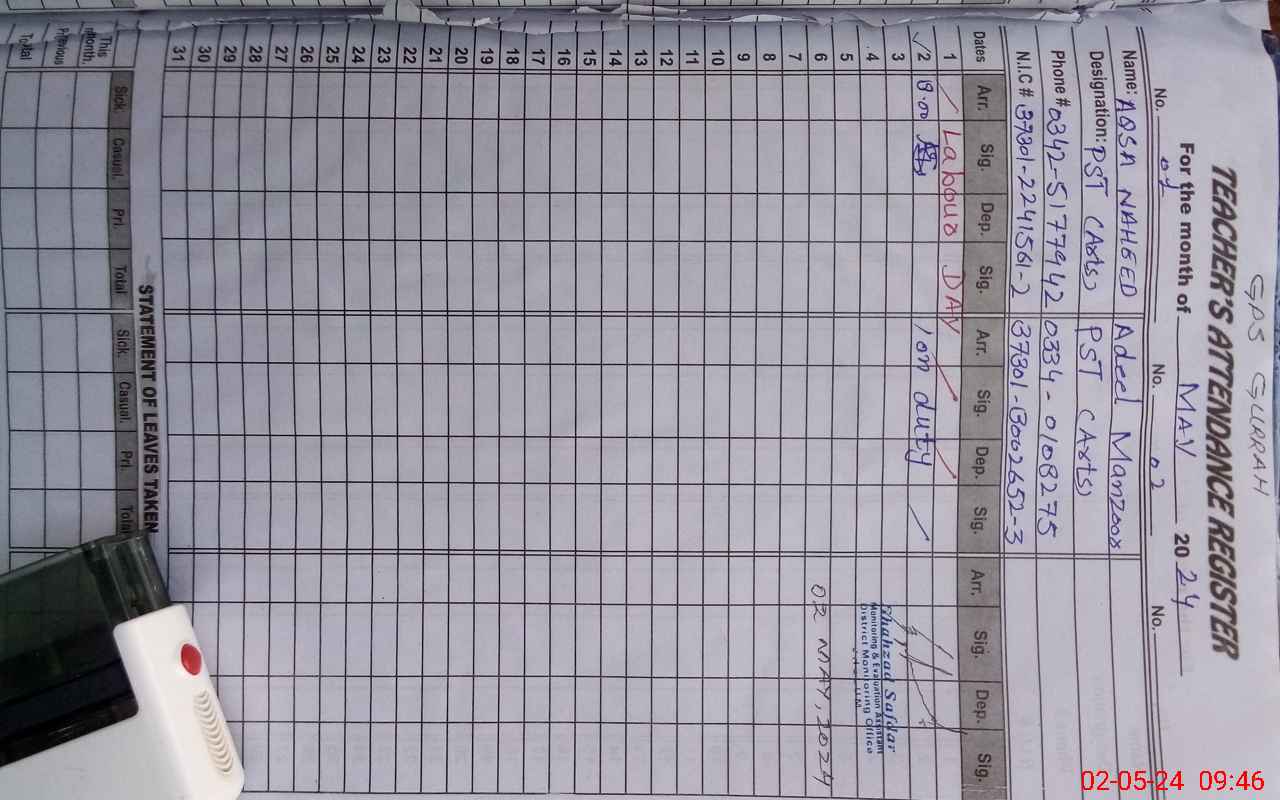 GPS GURAH
TEACHER'S ATTENDANCE REGISTER
For the month of MAY 2024
No. 01 No. 02 No.
Name: AQSA NAHEED Adeel Manzoor
Designation: PST (Arts) PST (Arts)
Phone # 0342-5177942 0334-0108275
N.I.C # 37301-2241561-2 37301-3002652-3
Dates Arr. Sig. Dep. Sig. Arr. Sig. Dep. Sig. Arr. Sig. Dep. Sig.
1 Labour DAY
2 on duty
3
4
5
6
7
8
9
10
11
12
13
14
15
16
17
18
19
20
21
22
23
24
25
26
27
28
29
30
31
Shahzad Safdar
Monitoring & Evaluation Assistant
District Monitoring Office
02 MAY, 2024
STATEMENT OF LEAVES TAKEN
Sick. Casual. Pri. Total Sick. Casual. Pri. Total
This Month.
Previous
Total
02-05-24 09:46